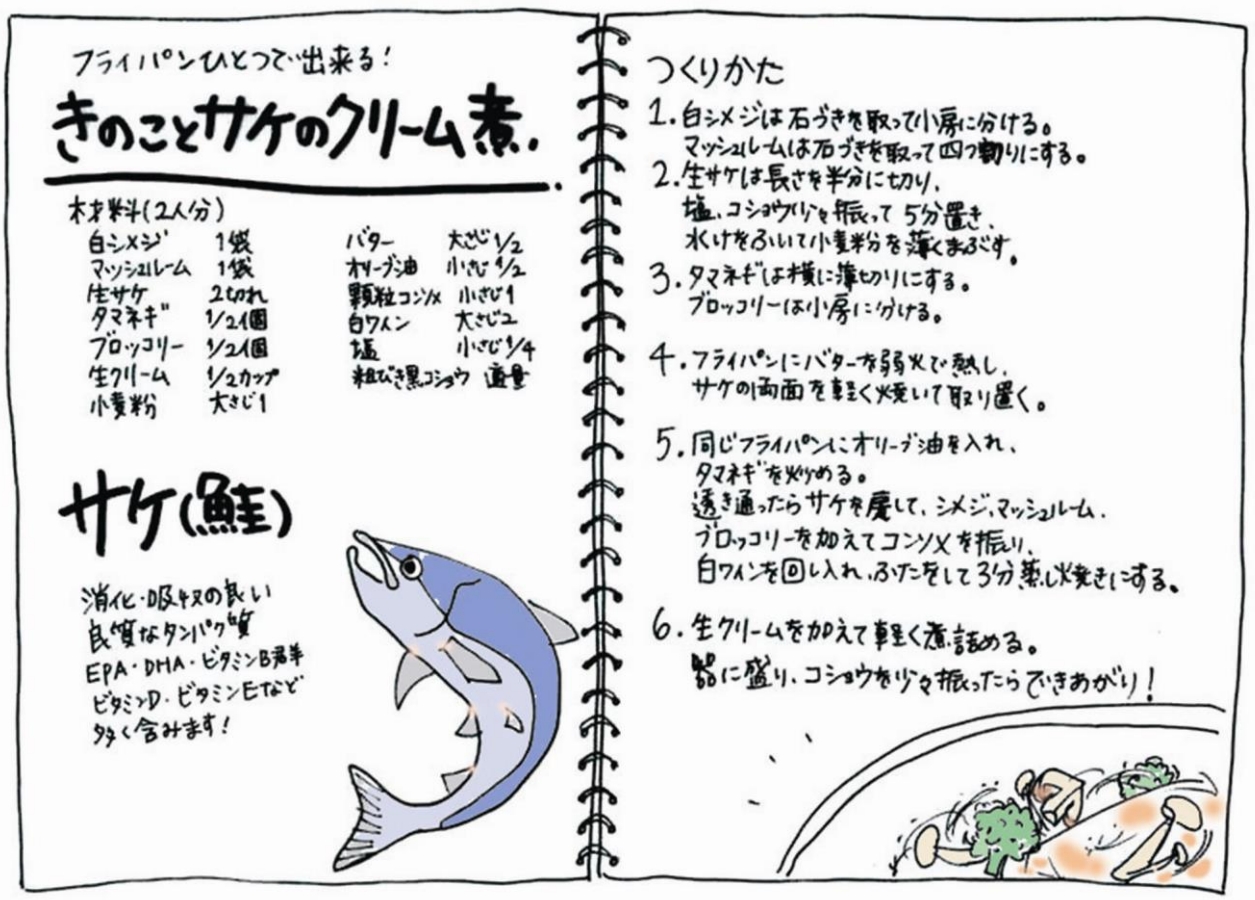 フライパンひとつで出来る!
きのことサケのクリーム煮.
材料(2人分)
白シメジ 1袋
マッシュルーム 1袋
生サケ 2切れ
タマネギ 1/2個
ブロッコリー 1/2個
生クリーム 1/2カップ
小麦粉 大さじ1
バター 大さじ1/2
オリーブ油 小さじ1/2
顆粒コンソメ 小さじ1
白ワイン 大さじ2
塩 小さじ1/4
粗びき黒コショウ 適量
サケ(鮭)
消化・吸収の良い
良質なタンパク質
EPA・DHA・ビタミンB群
ビタミンD・ビタミンEなど
多く含みます!
つくりかた
1.白シメジは石づきを取って小房に分ける。
マッシュルームは石づきを取って四つ割りにする。
2.生サケは長さを半分に切り、
塩、コショウ少々振って5分置き、
水けをふいて小麦粉を薄くまぶす。
3.タマネギは横に薄切りにする。
ブロッコリーは小房に分ける。
4.フライパンにバターを弱火で熱し、
サケの両面を軽く焼いて取り置く。
5.同じフライパンにオリーブ油を入れ、
タマネギを炒める。
透き通ったらサケを戻して、シメジ、マッシュルーム、
ブロッコリーを加えてコンソメを振り、
白ワインを回し入れ、ふたをして3分蒸し焼きにする。
6.生クリームを加えて軽く煮詰める。
器に盛り、コショウを少々振ったらできあがり!